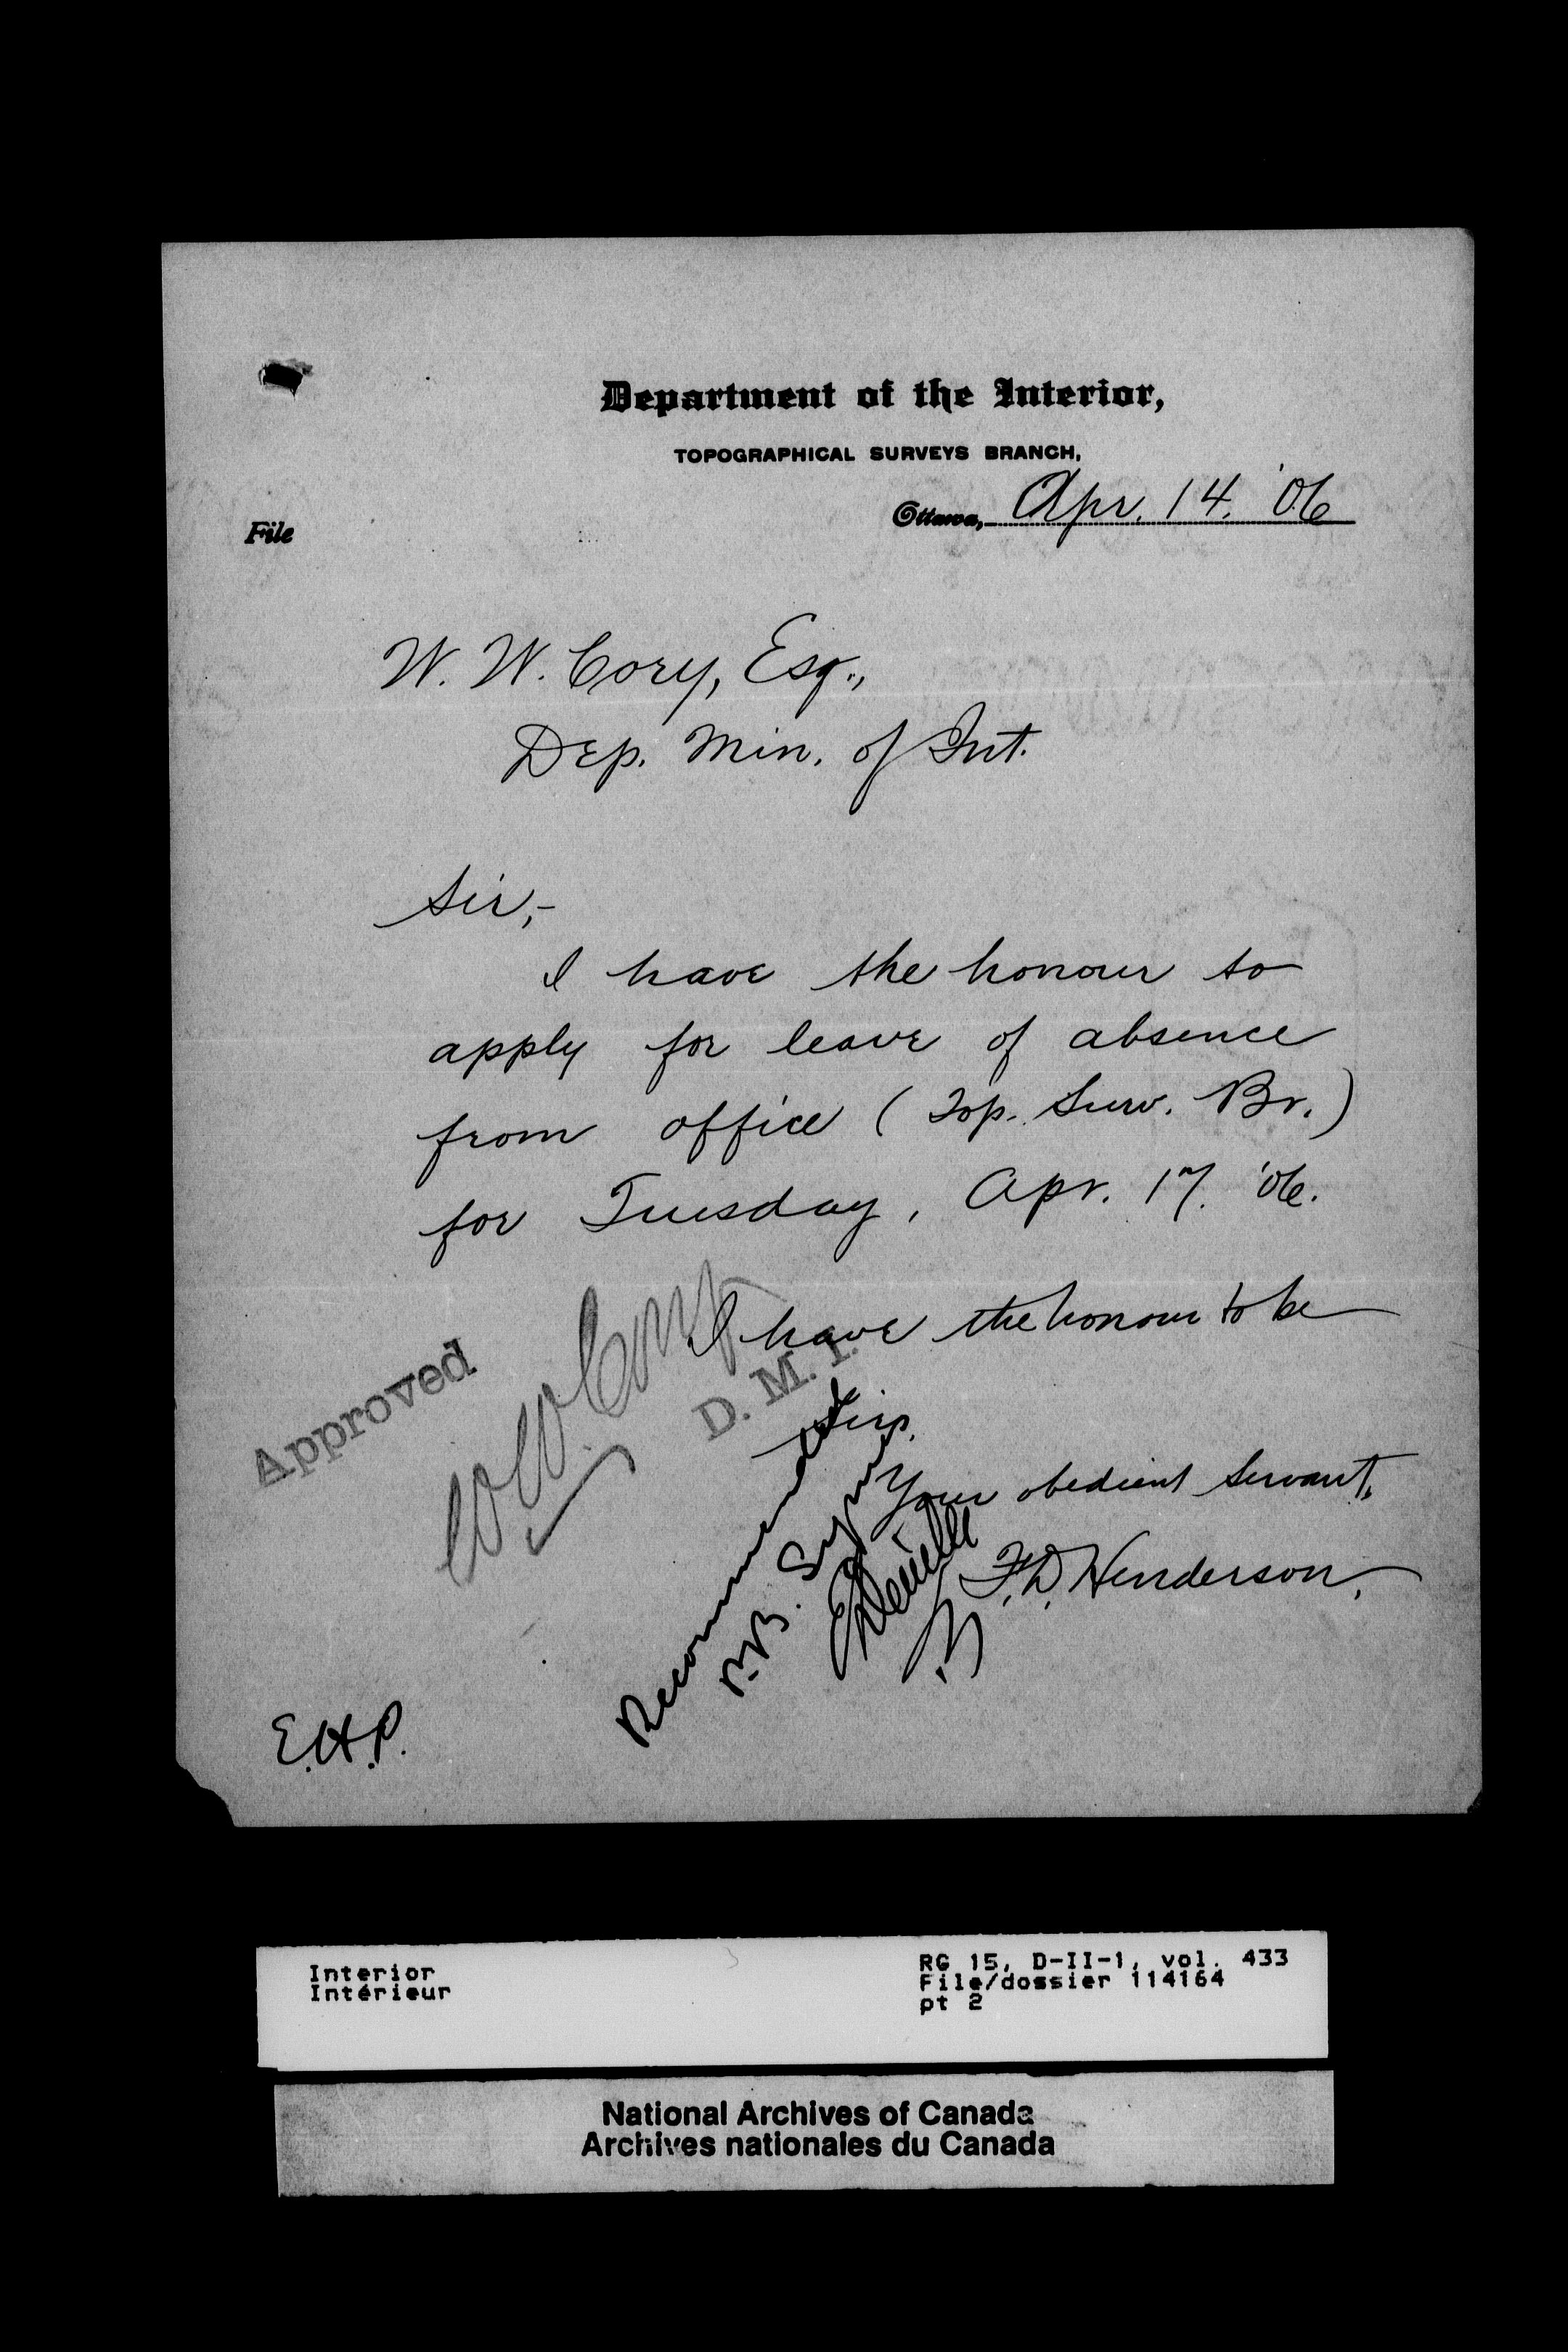 Department of the Interior,
TOPOGRAPHICAL SURVEYS BRANCH,
Ottawa, Apr. 14. '06
File
W. W. Cory, Esq.,
Dep. Min. of Int.
Sir,-
I have the honour to
apply for leave of absence
from office (Top. Surv. Br.)
for Tuesday, Apr. 17. '06.
I have the honour to be
Sir,
Your obedient servant,
F. D. Henderson.
Approved
W W Cory
D. M. I.
Recommended
P. B. Symes
E Deville
E.H.P.
Interior
Intérieur
RG 15, D-II-1, vol. 433
File/dossier 114164
pt 2
National Archives of Canada
Archives nationales du Canada